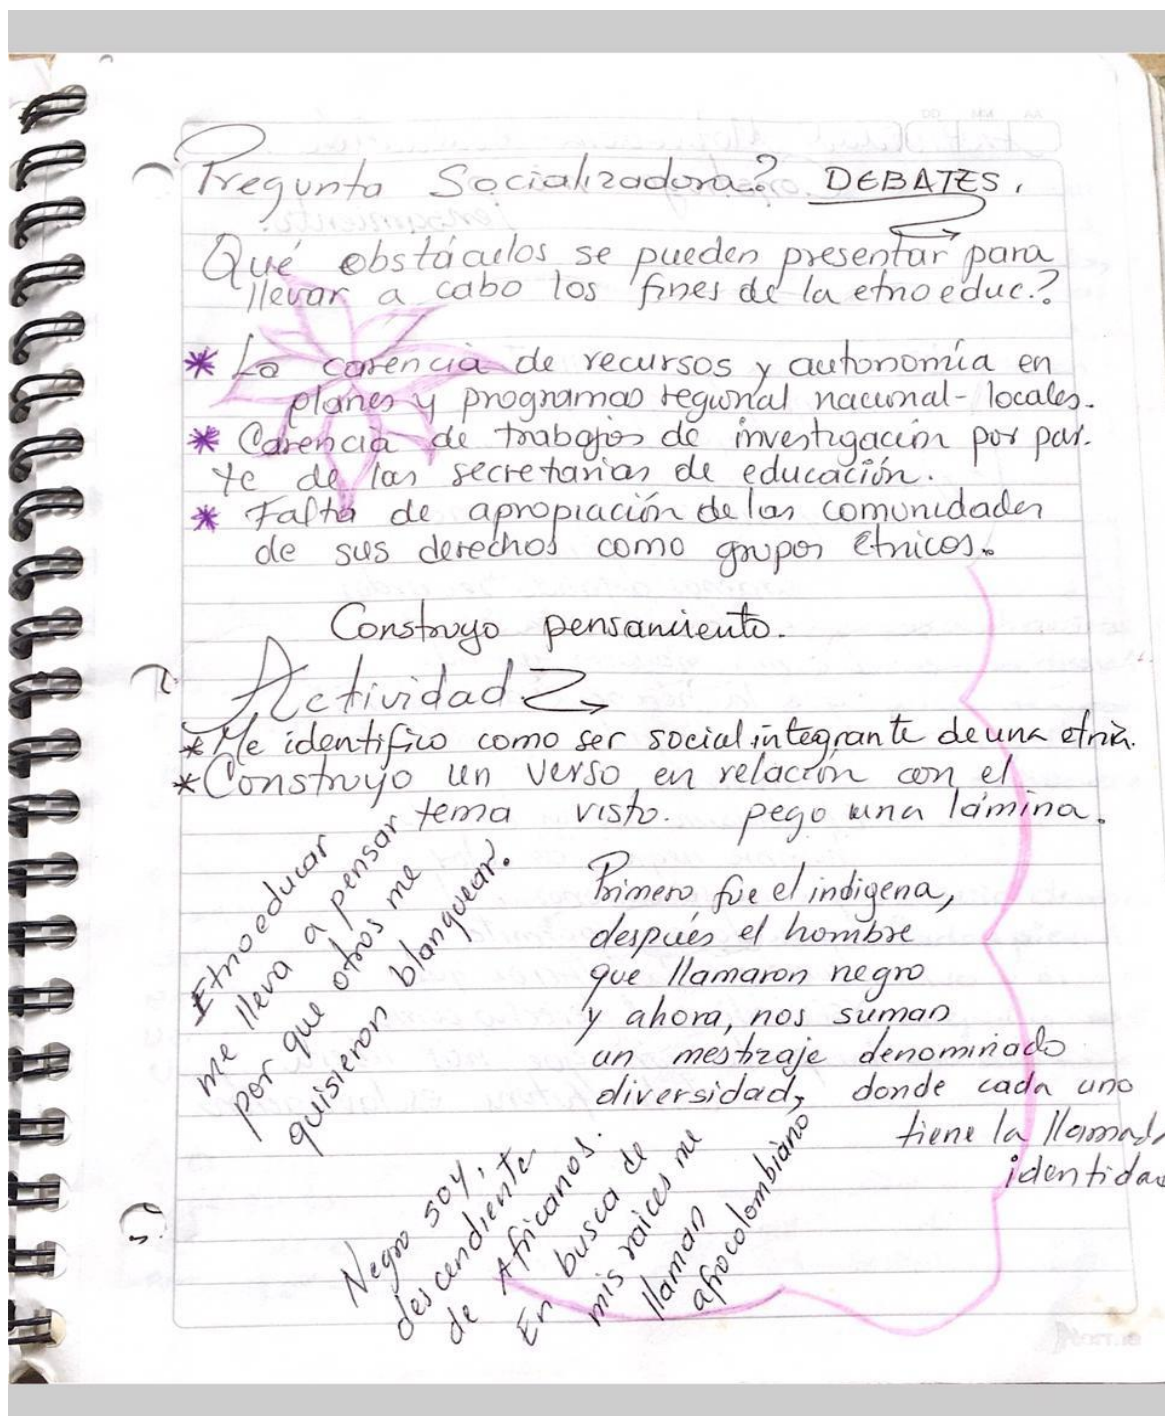 Pregunta Socializadora? DEBATES.
Qué obstáculos se pueden presentar para
llevar a cabo los fines de la etnoeduc.?
* La carencia de recursos y autonomía en
planes y programas regional nacional-locales.
* Carencia de trabajos de investigación por par-
te de las secretarías de educación.
* Falta de apropiación de las comunidades
de sus derechos como grupos étnicos.
Construyo pensamiento.
Actividad
* Me identifico como ser social integrante de una etnia.
* Construyo un verso en relación con el
tema visto. pego una lámina.
Etnoeducar
me lleva a pensar
por que otros me
quisieron blanquear.
Primero fue el indigena,
después el hombre
que llamaron negro
y ahora, nos suman
un mestizaje denominado
diversidad, donde cada uno
tiene la llamada
identidad
Negro soy,
descendiente
de Africanos.
En busca de
mis raices me
llaman
afrocolombiano